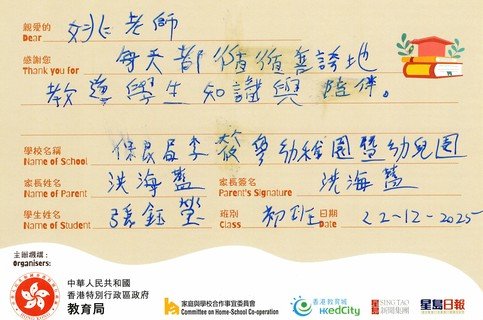 親愛的
Dear 姚老師
感謝您 每天都循循善誘地
Thank you for
教導學生知識與陪伴。
學校名稱 保良局李筱夢幼稚園暨幼兒園
Name of School
家長姓名 洪海藍 家長簽名 洪海藍
Name of Parent Parent's Signature
學生姓名 張鈺瑩 班別 初班 日期 22-12-2025
Name of Student Class Date
主辦機構:
Organisers:
中華人民共和國
香港特別行政區政府
教育局
家庭與學校合作事宜委員會
Committee on Home-School Co-operation
香港教育城
HKedCity
星島 SING TAO
新聞集團
星島日報